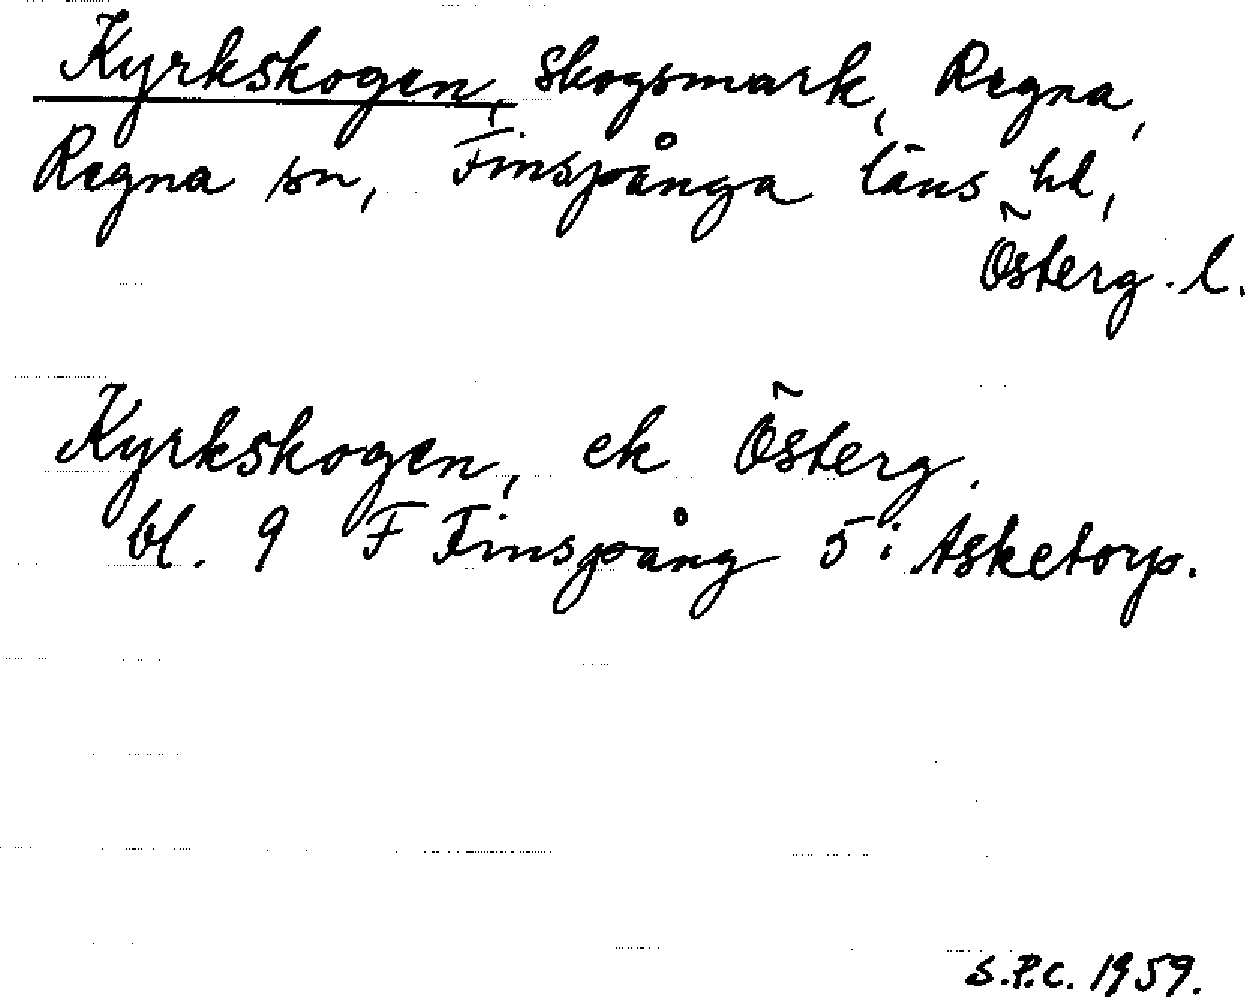 Kyrkskogen, skogsmark, Regna,
Regna sn, Finspånga läns hd,
Österg. l.
Kyrkskogen, ek Österg.
bl. 9 F Finspång 5 i Asketorp.
S.P.C. 1959.